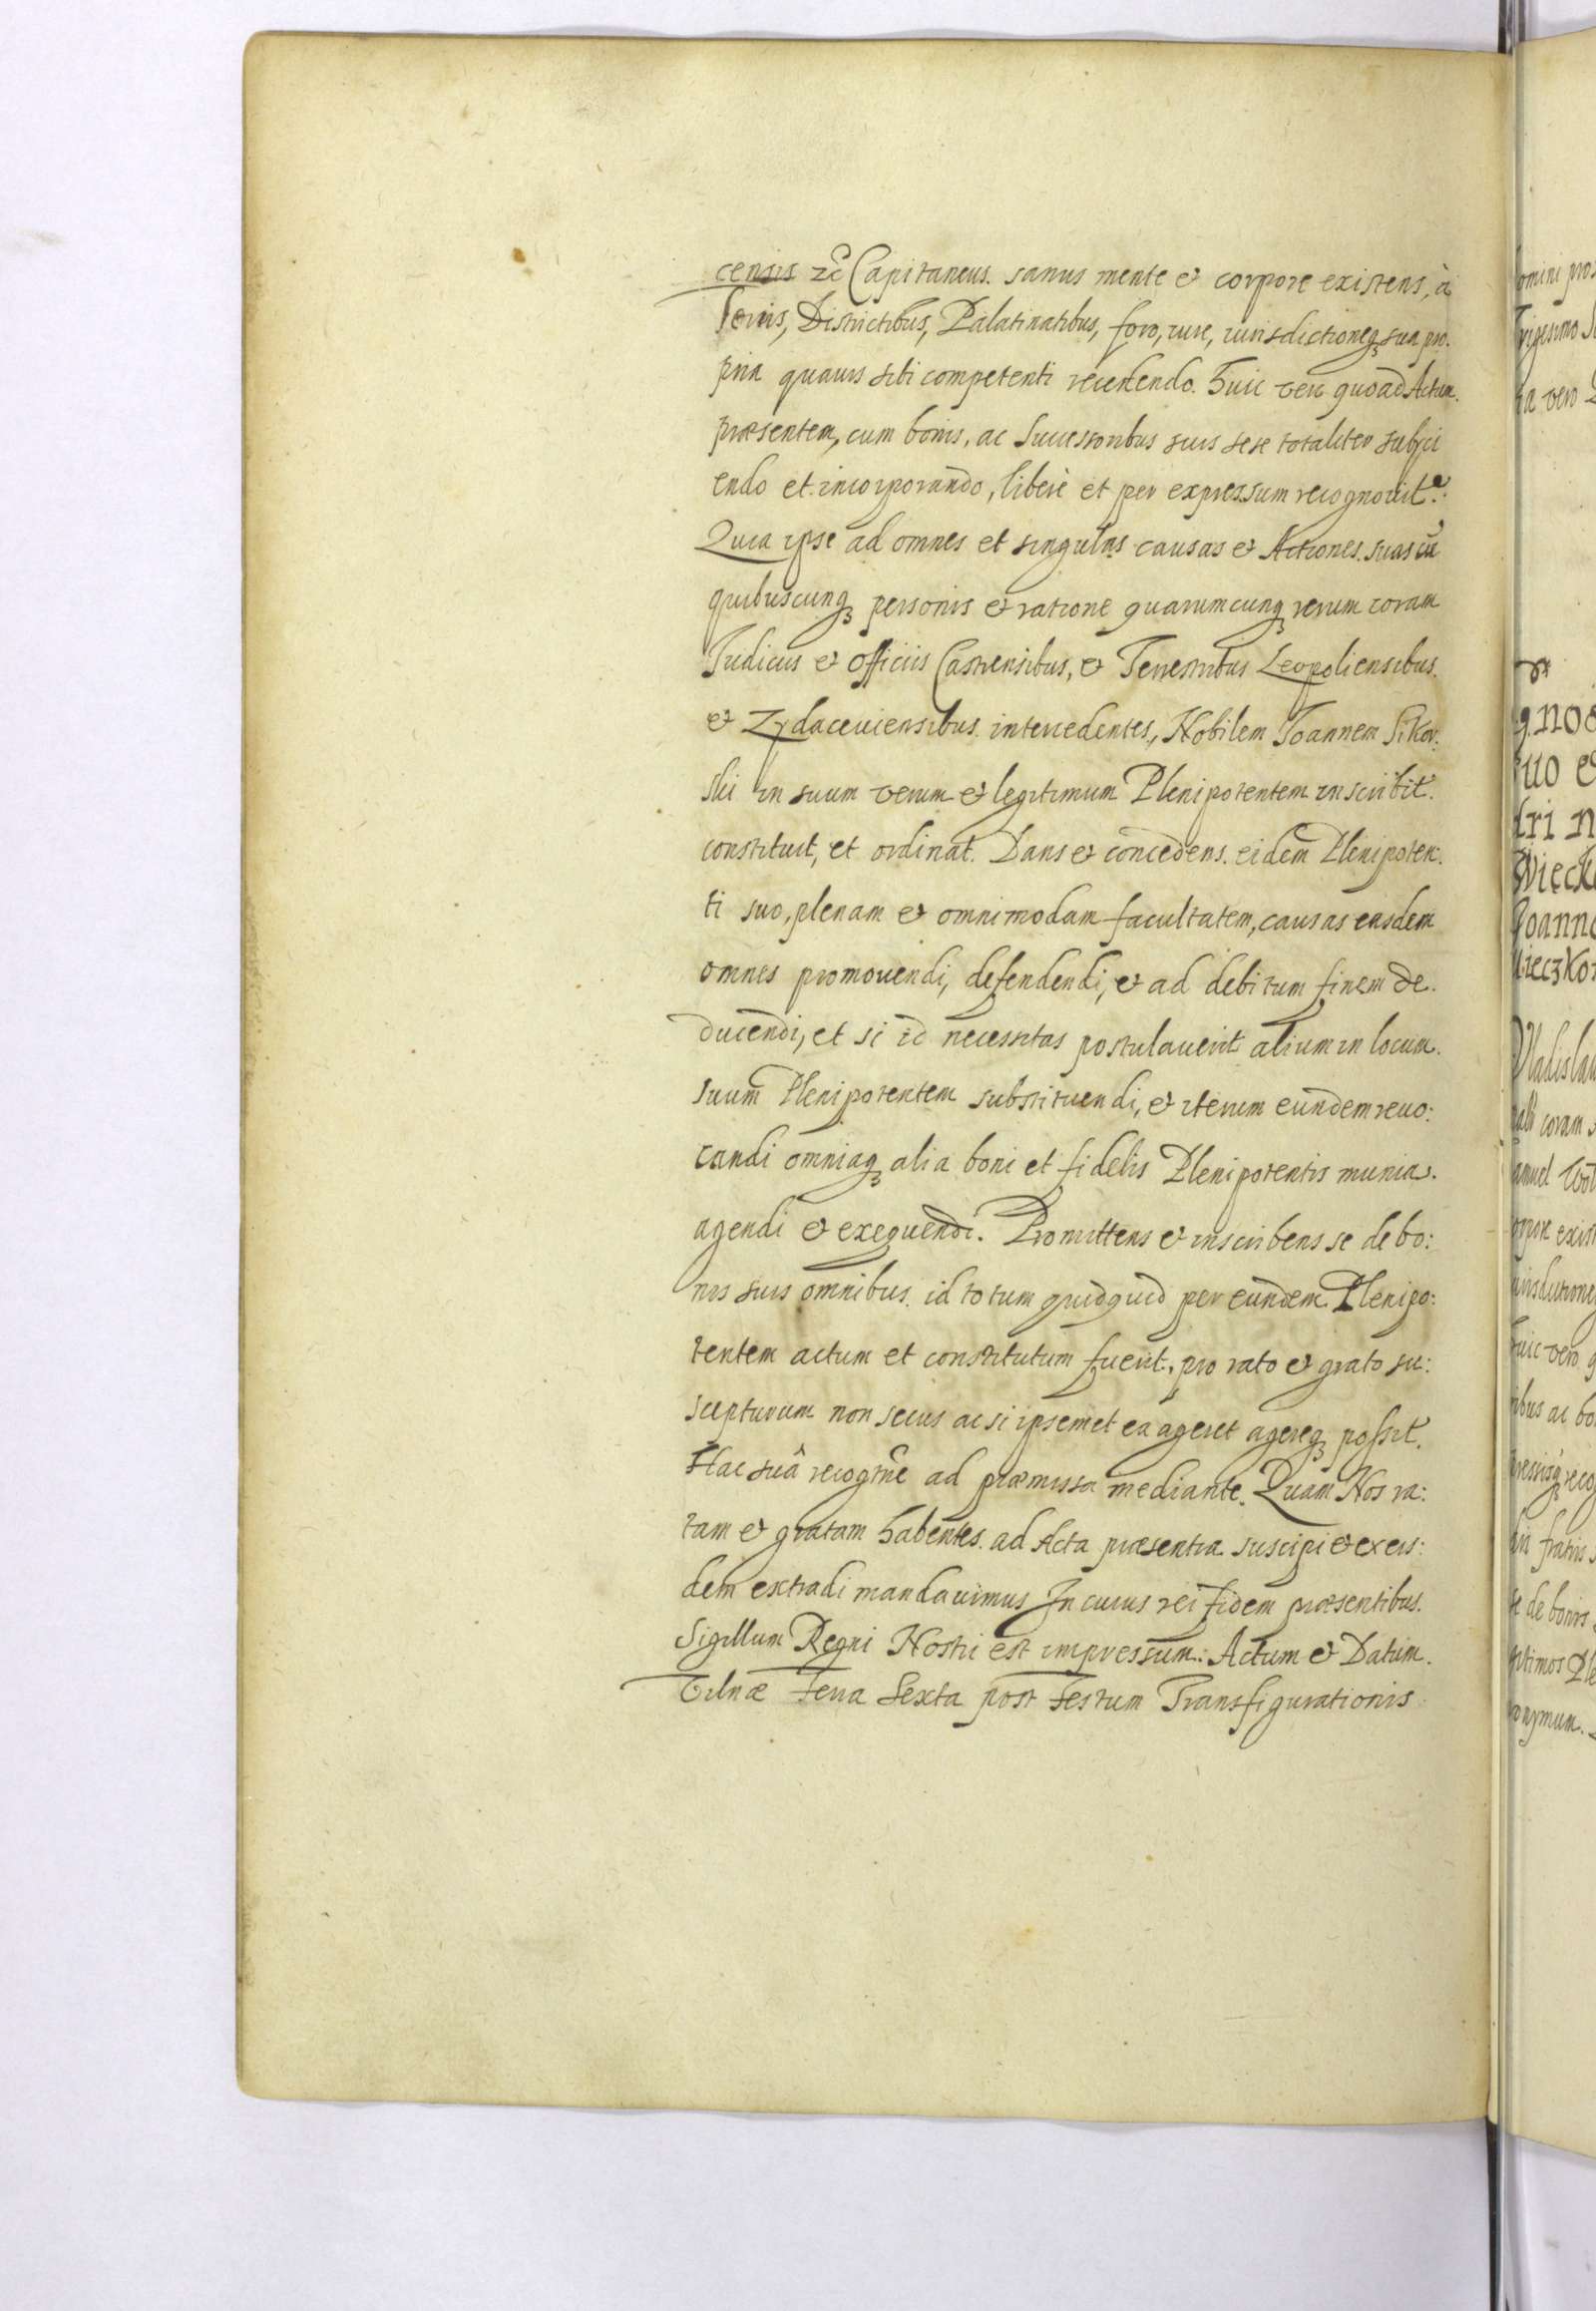 censis &c Capitaneus. sanus mente et corpore existens, à
Terris, Districtibus, Palatinatibus, foro, iure, iurisdictioneq₃ sua pro.
pria quavis sibi competenti recedendo. Huic vero quoad Actum.
præsentem, cum bonis, ac Successoribus suis sese totaliter subjici
endo et incorporando, liberè et per expressum recognovit.
Quia ipse ad omnes et singulas causas et Actiones. suas cũ
quibuscunq₃ personis et ratione quarumcunq₃ rerum coram
Judiciis et officiis Castrensibus, et Terrestribus Leopoliensibus.
et Zydaceviensibus. intercedentes, Nobilem Joannem Sikor:
ski in suum verum et legitimum Plenipotentem inscribit.
constituit, et ordinat. Dans et concedens. eidem Plenipoten:
ti suo, plenam et omnimodam facultatem, causas easdem
omnes promovendi, defendendi, et ad debitum finem de.
ducendi, et si id necessitas postulaverit alium in locum.
suum Plenipotentem substituendi, et iterum eundem revo:
candi omniaq₃ alia boni et fidelis Plenipotentis munia.
agendi et exequendi. Promittens et inscribens se de bo:
nis suis omnibus. id totum quidquid per eundem Plenipo:
tentem actum et constitutum fuerit, pro rato et grato su:
scepturum non secus ac si ipsemet ea ageret agereq₃ possit.
Hac suâ recogñe ad præmissa mediante. Quam Nos ra:
tam et gratam habentes. ad Acta præsentia suscipi et ex eis:
dem extradi mandavimus In cuius rei fidem præsentibus.
Sigillum Regni Nostri est impressum: Actum et Datum.
Vilnæ feria Sexta post Festum Transfigurationis